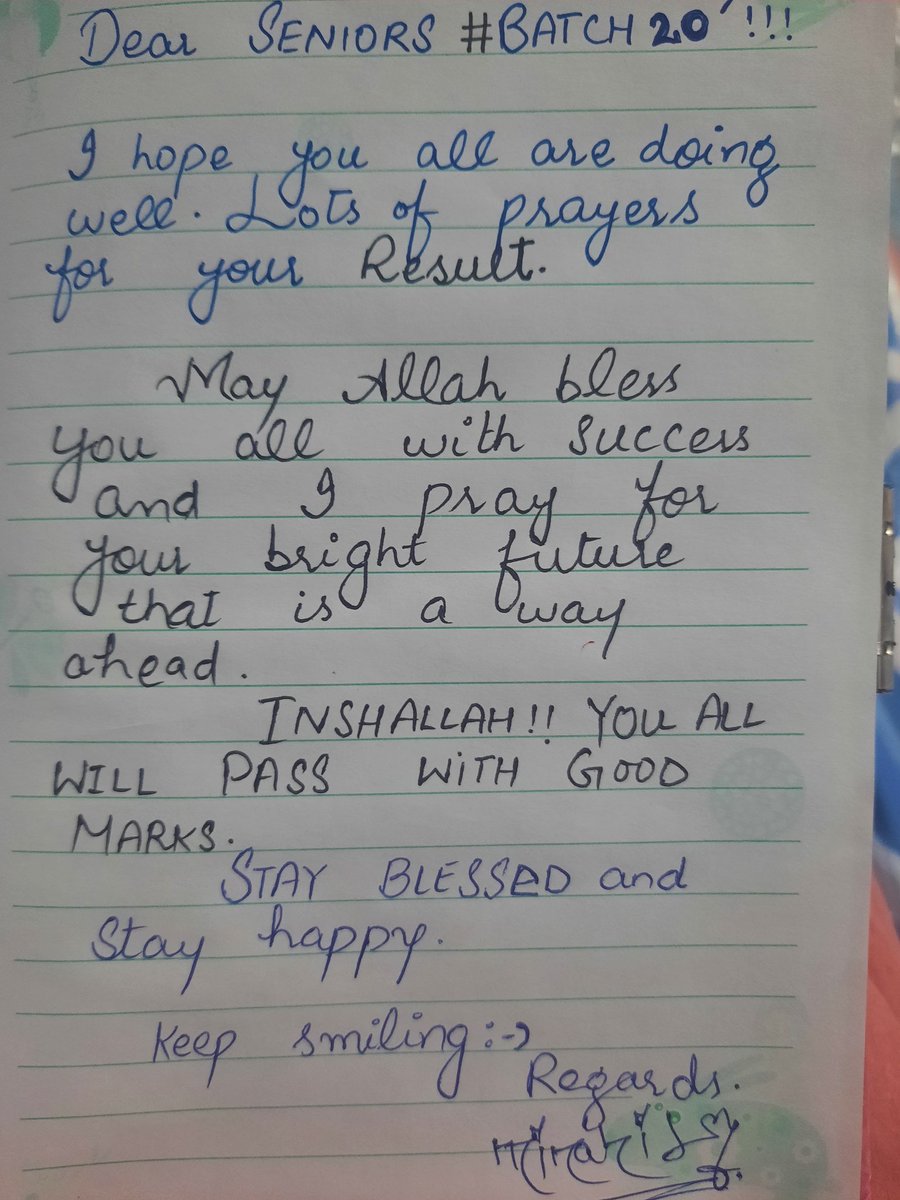 Dear SENIORS #BATCH 20' !!!
I hope you all are doing
well. Lots of prayers
for your Result.
May Allah bless
you all with success
and I pray for
your bright future
that is a way
ahead.
INSHALLAH!! YOU ALL
WILL PASS WITH GOOD
MARKS.
STAY BLESSED and
Stay happy.
Keep smiling :-)
Regards.